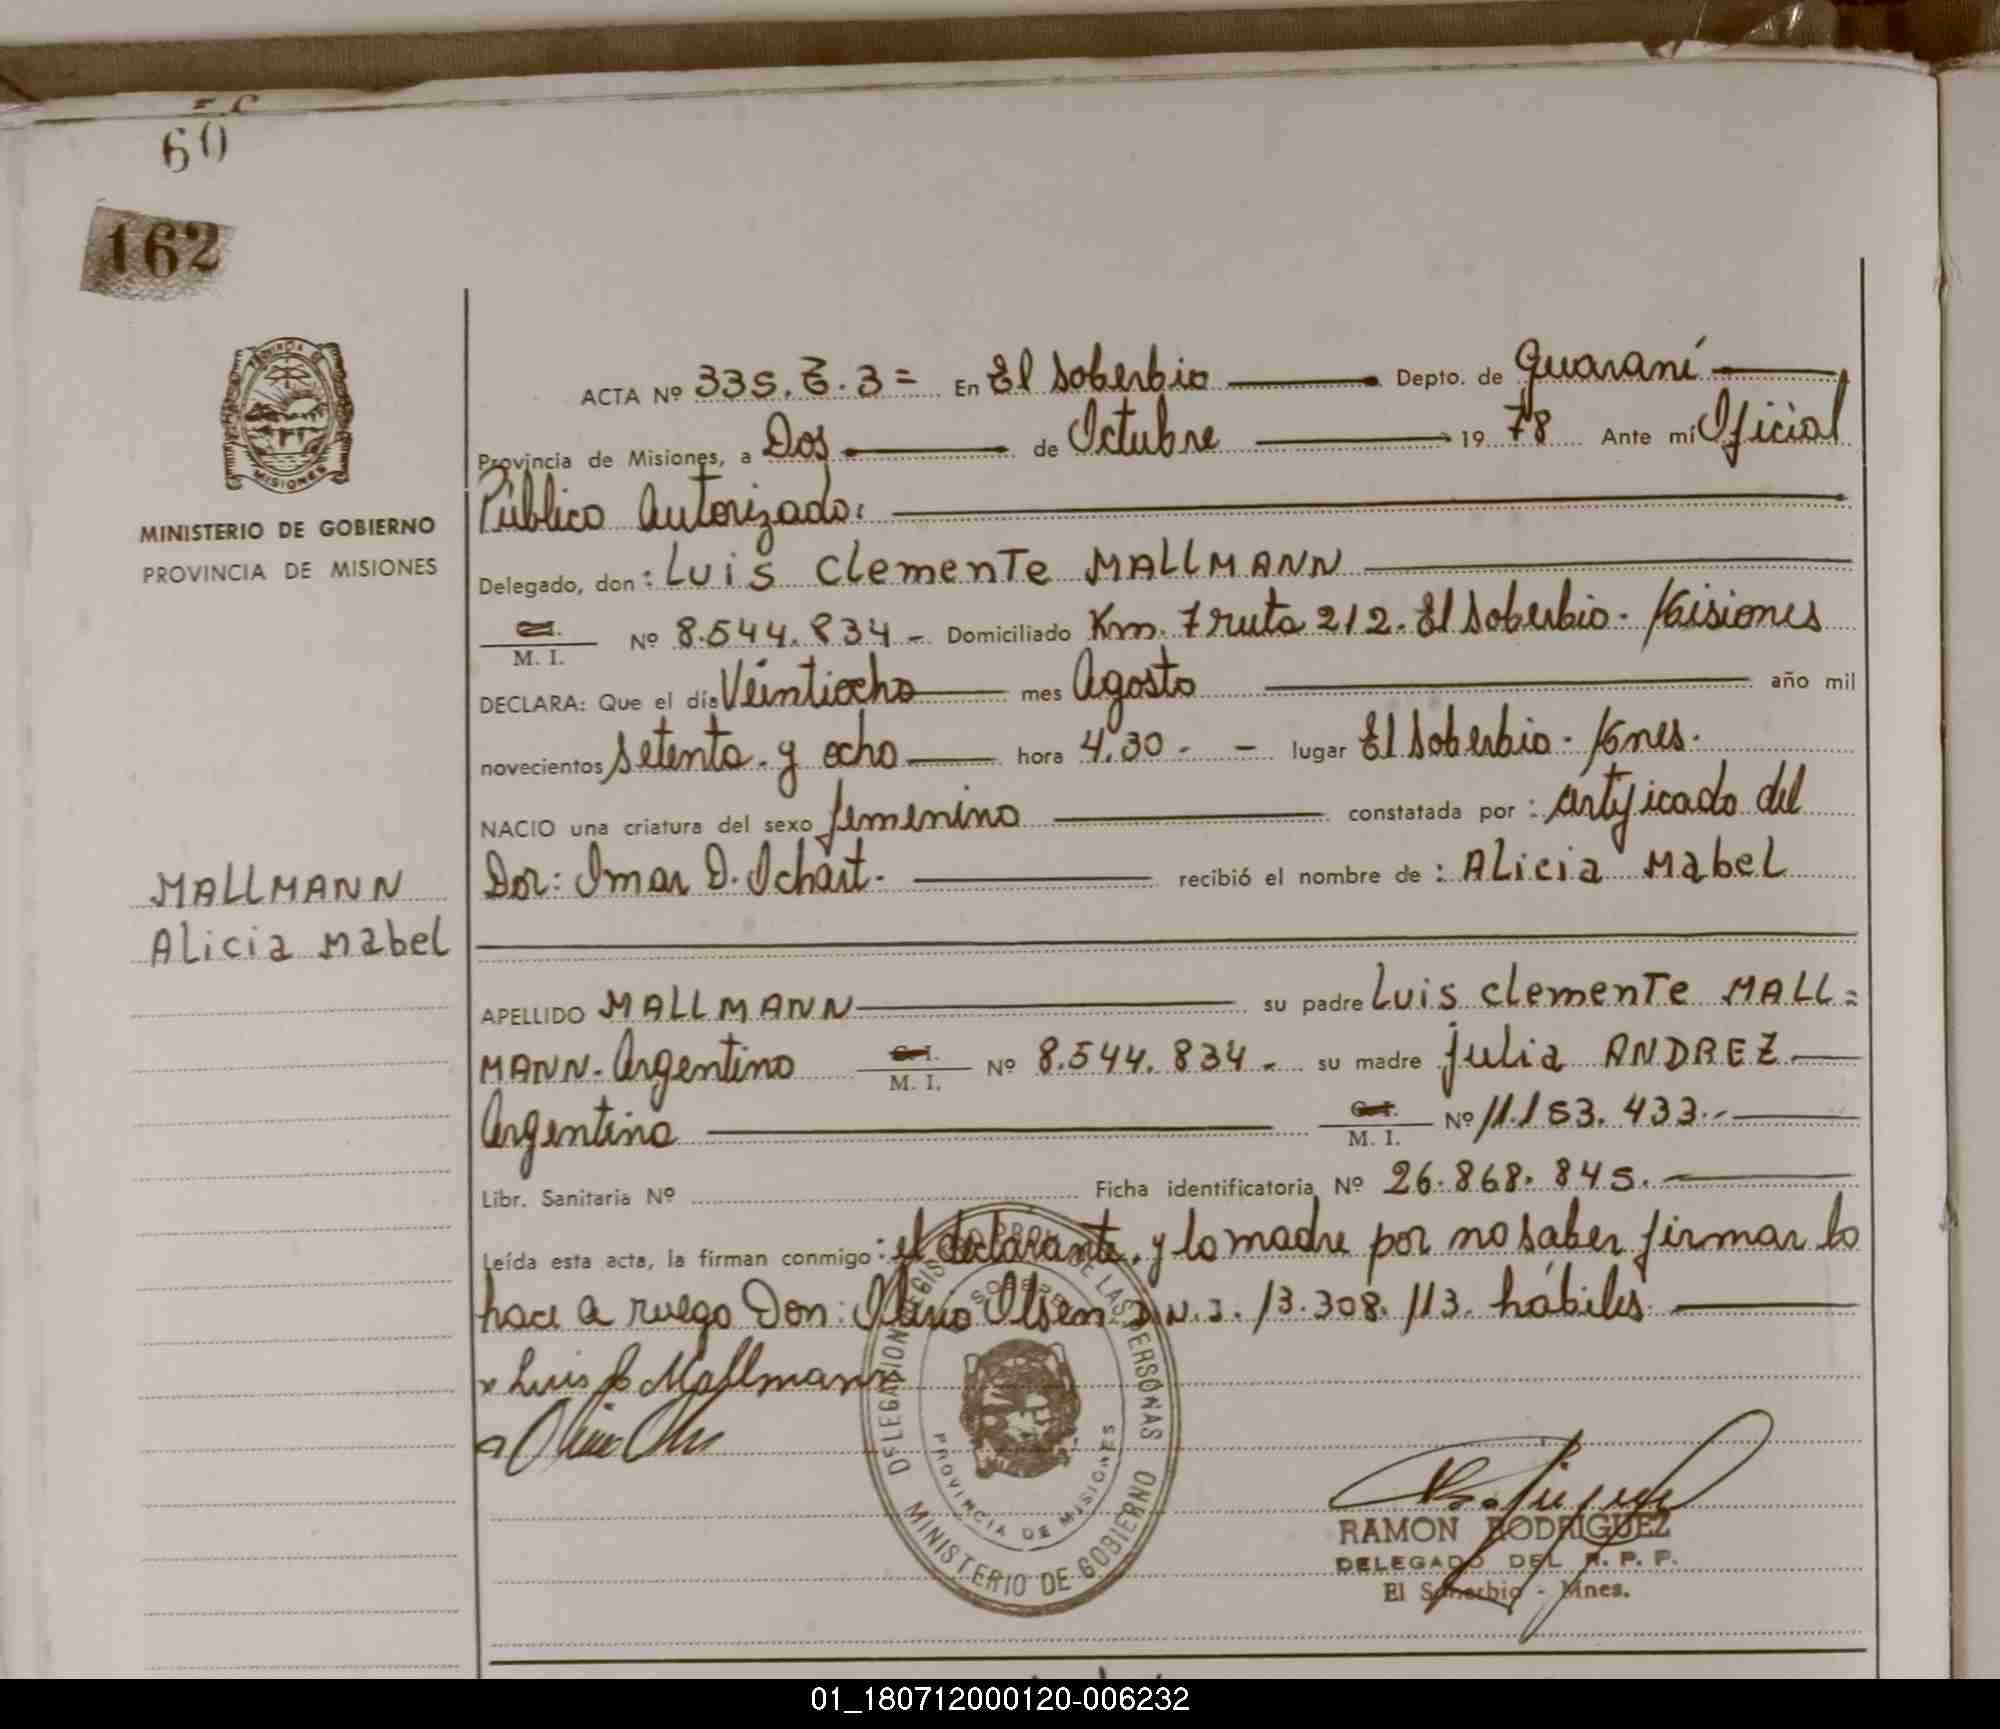 60
162
MINISTERIO DE GOBIERNO
PROVINCIA DE MISIONES
ACTA Nº 335. T. 3= En El Soberbio Depto. de Guaraní
Provincia de Misiones, a Dos de Octubre 19 78 Ante mí Oficial
Público Autorizado:
Delegado, don: Luis Clemente MALLMANN
C.I. M. I. Nº 8.544.834 - Domiciliado Km. 7 ruta 212. El Soberbio - Misiones
DECLARA: Que el día Veintiocho mes Agosto año mil
novecientos setenta y ocho hora 4.30 - - lugar El Soberbio - Mnes.
NACIO una criatura del sexo femenino constatada por: certificado del
Dor: Omar D. Ochart. recibió el nombre de: Alicia Mabel
MALLMANN
Alicia Mabel
APELLIDO MALLMANN su padre Luis Clemente MALL=
MANN. Argentino C.I. M. I. Nº 8.544.834 - su madre Julia ANDREZ
Argentina C.I. M. I. Nº 11.153.433.-
Libr. Sanitaria Nº Ficha identificatoria Nº 26.868.845.
Leída esta acta, la firman conmigo: el declarante, y la madre por no saber firmar lo
hace a ruego Don: Olivio Olsen D.N.I. 13.308.113. hábiles
Luis C Mallmann
DELEGACION REGISTRO PROV. DE LAS PERSONAS
SOBERBIO
PROVINCIA DE MISIONES
MINISTERIO DE GOBIERNO
RAMON RODRIGUEZ
DELEGADO DEL R. P. P.
El Soberbio - Mnes.
01_180712000120-006232